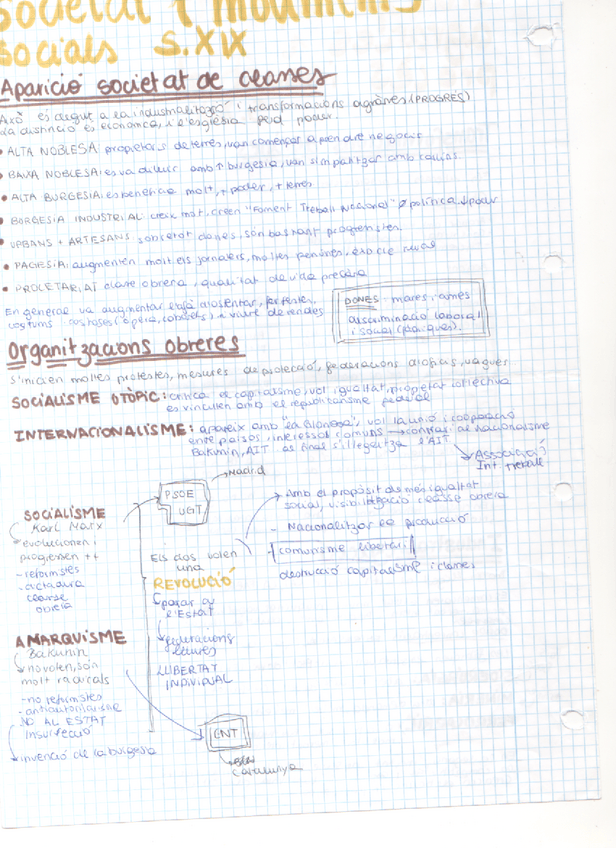 Societat i moviments
socials S.XIX
Aparició societat de classes
Això es degut a la industralització i transformacions agràries (PROGRÉS)
La distinció és econòmica, i l'església perd poder.
• ALTA NOBLESA: propietaris de terres, van començar a aprendre negocis
• BAIXA NOBLESA: es va diluir amb ↑ burgesia, van simpatitzar amb
• ALTA BURGESIA: es beneficia molt, + poder, + terres
• BORGESIA INDUSTRIAL: creix molt, creen "Foment Treball Nacional" Ø política ↓ poder
• URBANS + ARTESANS: sobretot dones, són bastant progresistes.
• PAGESIA: augmenten molt els jornalers, moltes penúries,
• PROLETARIAT: classe obrera, qualitat de vida precària
En general va augmentar
costums costoses (òpera, cobejets) + viure de rendes
DONES: mares i ames
discriminació laboral
i social (
Organitzacions obreres
S'inicien moltes protestes, mesures de protecció, federacions d'oficis, vagues
SOCIALISME UTÒPIC: critica el capitalisme, vol igualtat, propietat col·lectiva
es vinculen amb el republicanisme federal
INTERNACIONALISME: apareix amb "la Gloriosa", vol la unió i cooperació
entre països, interessos comuns → contrari al nacionalisme
Bakunin, AIT al final s'il·legalitza l'AIT
→ Associació
Int treball
→ Madrid
PSOE
UGT
SOCIALISME
Karl Marx
evolucionen i
progressen ++
- reformistes
- dictadura
classe
obrera
→ Amb el propòsit de més igualtat
social, visibilització classe obrera
- Nacionalitzar la producció
- comunisme llibertari
destrucció capitalisme i classes
Els dos volen
una
REVOLUCIÓ
passar de
l'Estat
federacions
lliures
LLIBERTAT
INDIVIDUAL
ANARQUISME
Bakunin
no volen, són
molt radicals
- no reformistes
- antiautoritarisme
NO AL ESTAT
Insurrecció
→ invenció de la burgesia
CNT
Catalunya